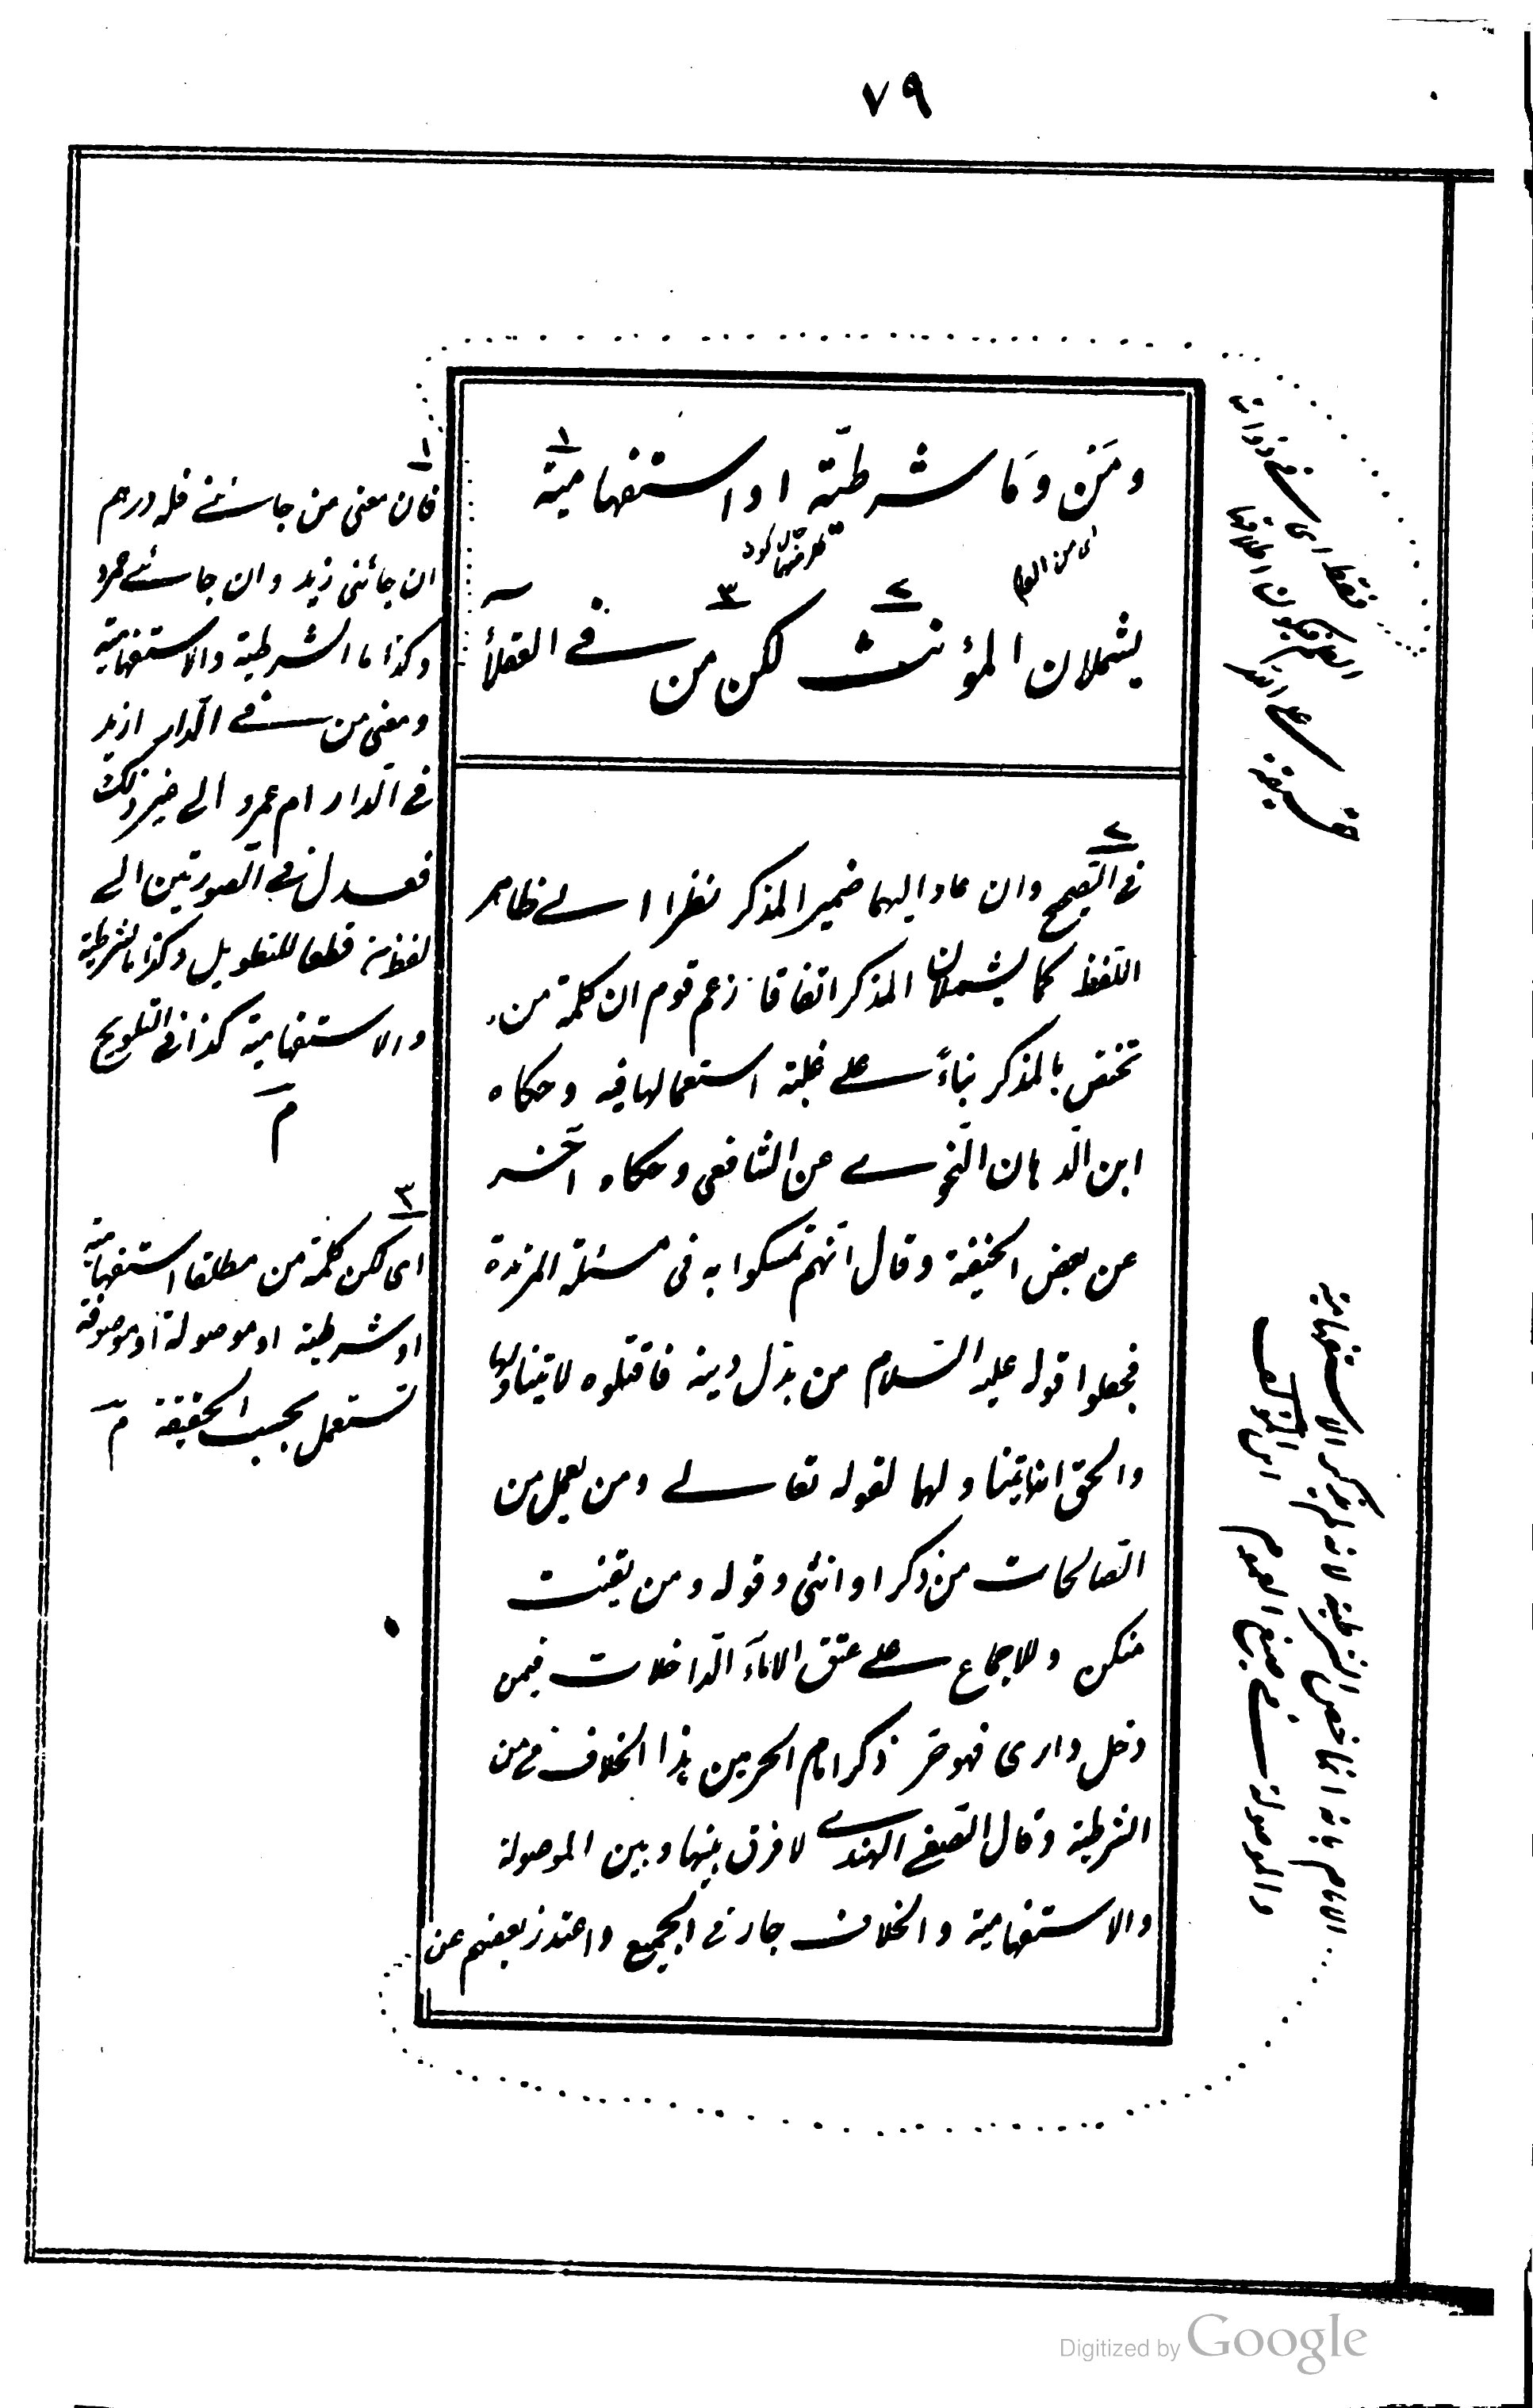 ٧٩
ومَن وما شرطيّة او استفهامية ١
اى من العام
يشملان المؤنث ٢ لكن من ٣ فى العقلاء
٢
فى الصحيح وان عاد اليهما ضمير المذكر نظرا الى ظاهر
اللفظ كما يشملان المذكر اتفاقا زعم قوم ان كلمة من
تختص بالمذكر بناءً على غلبة استعمالها فيه وحكاه
ابن الدّهان النحوى عن الشافعى وحكاه آخر
عن بعض الحنفية وقال انهم تمسكوا به فى مسئلة المرتدة
فجعلوا قوله عليه السّلام من بدّل دينه فاقتلوه لا يتناولها
والحق انها يتناولهما لقوله تعالى ومن يعمل من
الصّالحات من ذكر او انثى وقوله ومن يقنت
منكن وللاجماع على عتق الاماء الدّاخلات فيمن
دخل دارى فهو حر ذكر امام الحرمين هذا الخلاف فى من
الشرطية وقال الصفى الهندى لا فرق بينها وبين الموصولة
والاستفهامية والخلاف جار فى الجميع واعتذر بعضهم عن
١
فان معنى من جاءنى فله درهم
ان جائنى زيد وان جاءنى عمرو
وكذا ما الشرطية والاستفهامية
ومعنى من فى الدار ازيد
فى الدار ام عمرو الى غير ذلك
فعدل فى الصورتين الى
لفظ من قطعا للتطويل وكذا ما الشرطية
والاستفهامية كذا فى التلويح
م
٣
اى لكن كلمة من مطلقا استفهامية
او شرطية او موصولة او موصوفة
تستعمل بحسب الحقيقة م